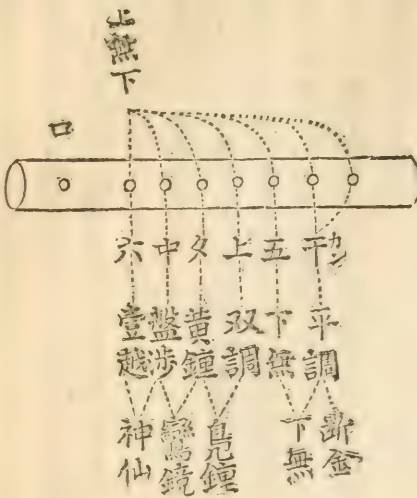 上無下
口
六
中
夕
上
五
干
カン
壹越
盤渉
黄鐘
双調
下無
平調
神仙
鸞鏡
鳧鐘
下無
断金